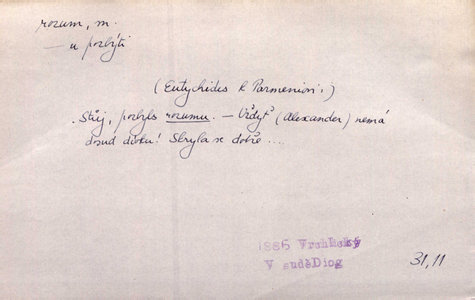 rozum, m.
— u pozbýti
(Eutychides k Parmenion',)
Stůj, pozbyls rozumu. — Vždyť (Alexander) nemá
dosud dívku! Skryla se dobře ....
1886 Vrchlický
V suděDiog
31,11